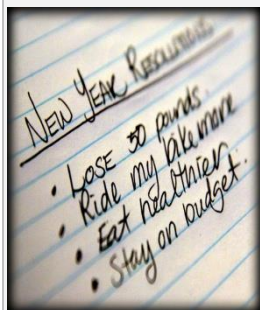 NEW YEAR RESOLUTIONS
• LOSE 30 pounds.
• Ride my bike more
• Eat healthier.
• Stay on budget.